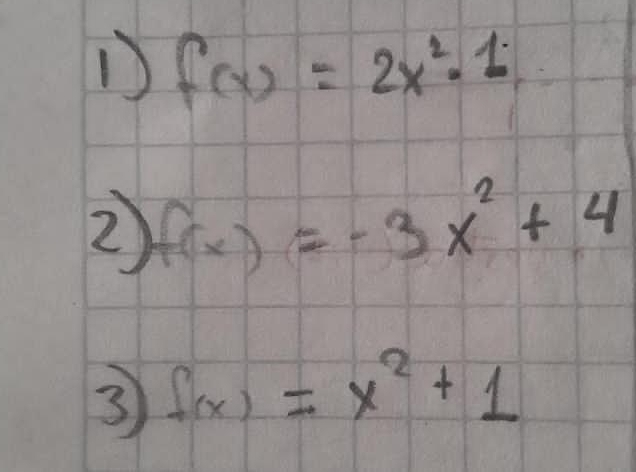 1) f(x) = 2x² - 1
2) f(x) = -3x² + 4
3) f(x) = x² + 1